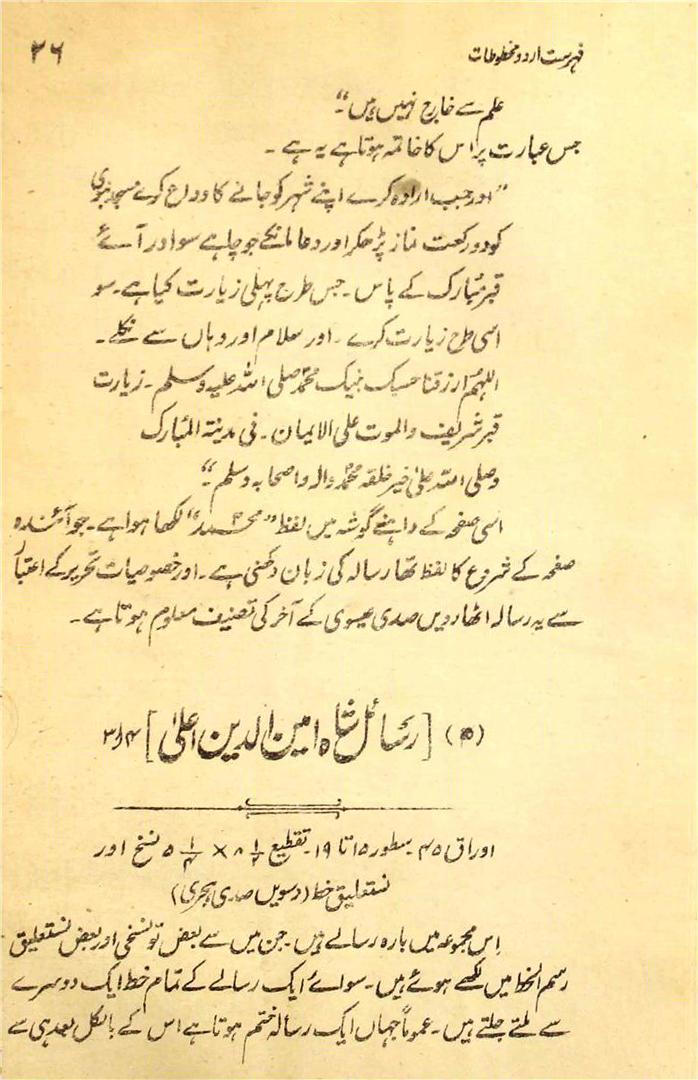 فہرست اردو مخطوطات ۲۶
علم سے خارج نہیں ہیں۔"
جس عبارت پر اس کا خاتمہ ہوتا ہے یہ ہے ۔
"اور جب ارادہ کرے اپنے شہر کو جانے کا وداع کرے مسجد نبوی
کو دو رکعت نماز پڑھکر اور دعا مانگے جو چاہے سو اور آئے
قبر مبارک کے پاس ۔ جس طرح پہلی زیارت کیا ہے ۔ سو
اسی طرح زیارت کرے ۔ اور سلام اور وہاں سے نکلے ۔
اللہم ارزقنا حبیک نبیک محمد صلی اللہ علیہ وسلم ۔ زیارت
قبر شریف والموت علی الایمان ۔ فی مدینۃ المبارک
وصلی اللہ علیٰ خیر خلقہ محمد والہ واصحابہ وسلم ۔"
اسی صفحہ کے داہنے گوشہ میں لفظ "محمد" لکھا ہوا ہے ۔ جو آئندہ
صفحہ کے شروع کا لفظ تھا رسالہ کی زبان دکھنی ہے ۔ اور خصوصیات تحریر کے اعتبار
سے یہ رسالہ اٹھارویں صدی عیسوی کے آخر کی تصنیف معلوم ہوتا ہے ۔
(۵) [رسائل شاہ امین الدین اعلیٰ]
اوراق ۴۵ ۔ سطور ۱۵ تا ۱۹ ۔ تقطیع ۸ ۱/۲ × ۵ ۱/۴ نسخ اور
نستعلیق خط (دسویں صدی ہجری)
اِس مجموعہ میں بارہ رسالے ہیں ۔ جن میں سے بعض تو نسخی اور بعض نستعلیق
رسم الخط میں لکھے ہوئے ہیں ۔ سوائے ایک رسالے کے تمام خط ایک دوسرے
سے ملتے جلتے ہیں ۔ عموماً جہاں ایک رسالہ ختم ہوتا ہے اس کے بالکل بعد ہی سے